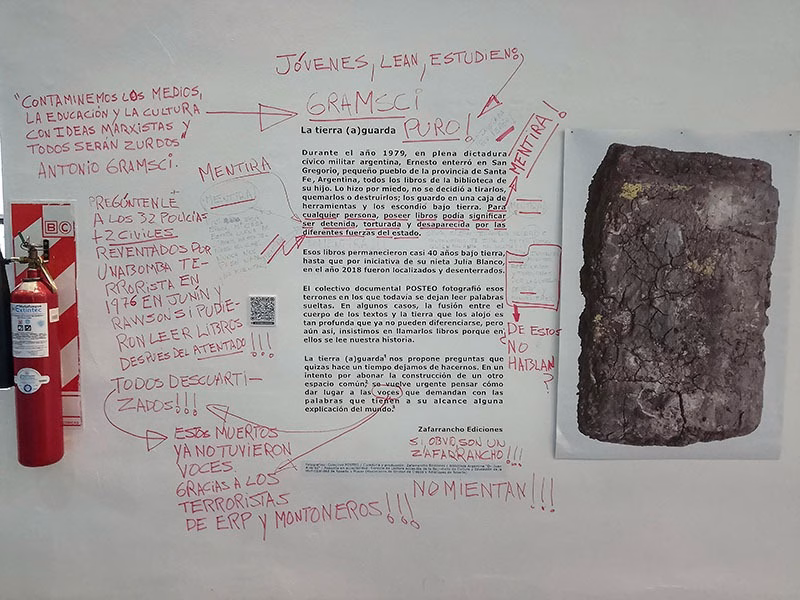 JÓVENES, LEAN, ESTUDIEN
"CONTAMINEMOS LOS MEDIOS,
LA EDUCACIÓN Y LA CULTURA
CON IDEAS MARXISTAS Y
TODOS SERÁN ZURDOS"
ANTONIO GRAMSCI.
GRAMSCI
PURO!
La tierra (a)guarda
Durante el año 1979, en plena dictadura
cívico militar argentina, Ernesto enterró en San
Gregorio, pequeño pueblo de la provincia de Santa
Fe, Argentina, todos los libros de la biblioteca de
su hijo. Lo hizo por miedo, no se decidió a tirarlos,
quemarlos o destruirlos; los guardo en una caja de
herramientas y los escondio bajo tierra. Para
cualquier persona, poseer libros podía significar
ser detenida, torturada y desaparecida por las
diferentes fuerzas del estado.
Esos libros permanecieron casi 40 años bajo tierra,
hasta que por iniciativa de su nieta Julia Blanco,
en el año 2018 fueron localizados y desenterrados.
El colectivo documental POSTEO fotografió esos
terrones en los que todavia se dejan leer palabras
sueltas. En algunos casos, la fusión entre el
cuerpo de los textos y la tierra que los alojo es
tan profunda que ya no pueden diferenciarse, pero
aún así, insistimos en llamarlos libros porque en
ellos se lee nuestra historia.
La tierra (a)guarda¹ nos propone preguntas que
quizas hace un tiempo dejamos de hacernos. En un
intento por abonar la construcción de un otro
espacio común, se vuelve urgente pensar cómo
dar lugar a las voces que demandan con las
palabras que tienen a su alcance alguna
explicación del mundo.
Zafarrancho Ediciones
SI, OBVIO, SON UN
ZAFARRANCHO!!!
NO MIENTAN!!!
MENTIRA
MENTIRA!
¿DE ESTOS
NO
HABLAN
?
PREGÚNTENLE
A LOS 32 POLICIAS
+2 CIVILES
REVENTADOS POR
UNA BOMBA TE-
RRORISTA EN
1976 EN JUNÍN Y
RAWSON SI PUDIE-
RON LEER LIBROS
DESPUES DEL ATENTADO!!!
TODOS DESCUARTI-
ZADOS!!!
ESTOS MUERTOS
YA NO TUVIERON
VOCES
GRACIAS A LOS
TERRORISTAS
DE ERP Y MONTONEROS!!!
BC